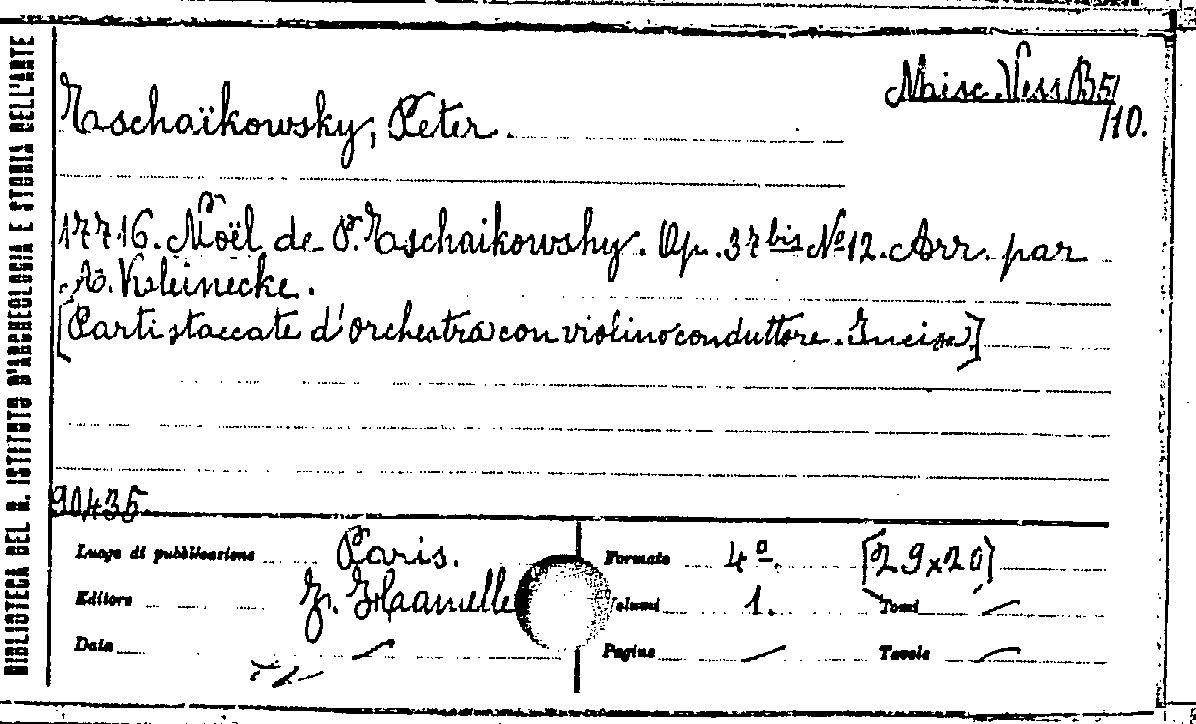 BIBLIOTECA DEL R. ISTITUTO D'ARCHEOLOGIA E STORIA DELL'ARTE
Misc. Vess. B 51
/10.
Taschaïkowsky, Peter.
17716. Noël de P. Tschaikowshy. Op. 37 bis Nº 12. Arr. par
A. Kleinecke.
[Parti staccate d'orchestra con violino conduttore. Incise]
90435
Luogo di pubblicazione Paris. Formato 4º. [29x20]
Editore J. Hamelle Volumi 1. Tomi /
Data / Pagine / Tavole /